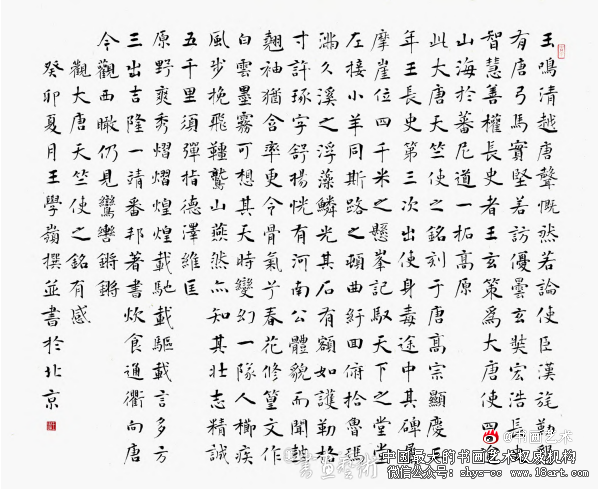 玉鳴清越唐聲慨然若論使臣漢旌勒
有唐弓馬實堅若訪優曇玄奘宏浩長史
智慧善權長史者王玄策為大唐使四
山海於蕃尼道一拓高原
此大唐天竺使之銘刻于唐高宗顯慶三
年王長史第三次出使身毒途中其碑
摩崖位四千米之懸峯記馭天下之堂堂
左接小羊同斯路之頓曲紆回俯拾魯瑪
滿久溪之浮藻鱗光其石有額如護勒格
寸許琢字舒揚恍有河南公體貌而聞韶
翹袖猶含率更令骨氣兮春花修篁文作
白雲墨霧可想其天時變幻一隊人櫛疾
風步挽飛韁鷲山燕然亦知其壯志精誠
五千里須彈指德澤維匡
原野爽秀熠熠煌煌載馳載驅載言多方
三出吉隆一靖番邦著書炊食通衢向唐
今觀西瞰仍見鸞轡鏘鏘
觀大唐天竺使之銘有感
癸卯夏月王學嶺撰並書於北京
书画艺术
中国最大的书画艺术权威机构
微信公众号：shys-cc www.zgshys.com